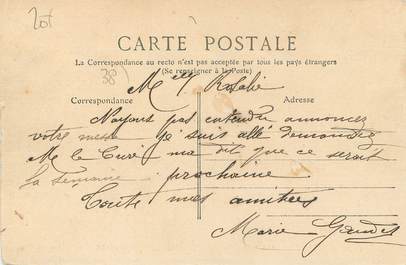 Lot
CARTE POSTALE
La Correspondance au recto n'est pas acceptée par tous les pays étrangers
(Se renseigner à la Poste)
38)
Melle Rosalie
Correspondance
Adresse
N'ayons pas entendu annoncez
votre messe je suis allé demandez
M le Curé ma dit que ce serait
la semaine prochaine
Toute mes amitiées
Marie